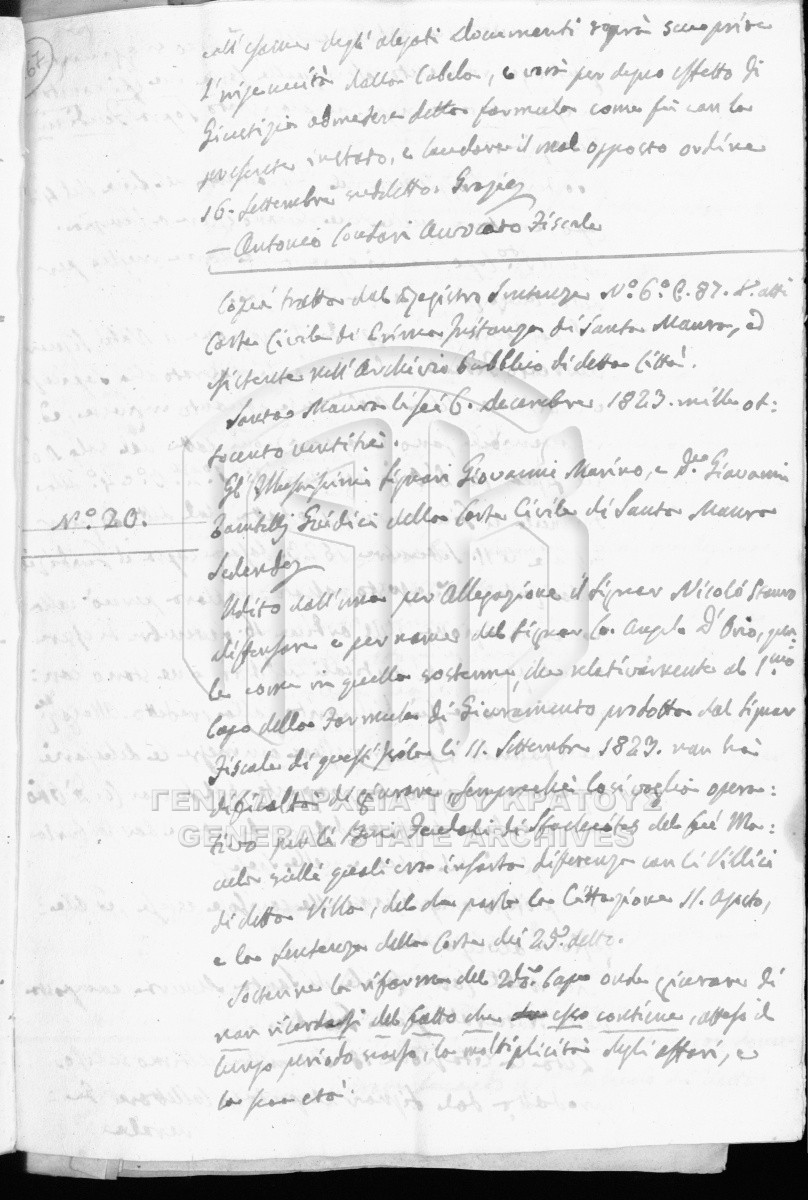 all'esame degli alegati Documenti saprà scuoprire
l'ingenuità dalla Cabela, e vorrà per degno effetto di
Giustizia admettere detta formula come fù con la
presente instato, e laudare il mal opposto ordine
16. Settembre suddetto. Grazie
— Antonio Condari Avvocato Fiscale
Copia tratta dal Registro Sentenze N.º 6.º C. 87. d'atti
Corte Civile di Prima Instanza di Santa Maura, ed
esistente nell'Archivio Pubblico di detta Città.
Santa Maura li sei 6. decembre 1823. mille ot:
tocento ventitrè.
Gl'Illustrissimi Signori Giovanni Marino, e D.r Giovanni
Giudici della Corte Civile di Santa Maura
N.º 20.
Sedendo
Udito dall'una per Allegazione il Signor Nicolò Stauro
difensore e per nome del Signor Co. Angelo D'Orio, quan:
le come in quella sostenne, che relativamente al 1.mo
Capo della Formula di Giuramento prodotta dal Signor
Fiscale di quest'Isola li 11. Settembre 1823. non hà
dificoltà di giurare, sempreché lo si voglia opera:
tivo sulli Beni Feudali di Sfachiotes del fù Ma:
sulli quali era insorta diferenza con li Villici
di detta Villa, del che parla la Cittazione 11. Agosto,
e la Sentenza della Corte dei 29. detto.
Sostenne la riforma del 2do. Capo onde giurare di
non ricordarsi del fatto che esso contiene, atteso il
lungo periodo scorso, la moltiplicità degli affari, e
la sua età.